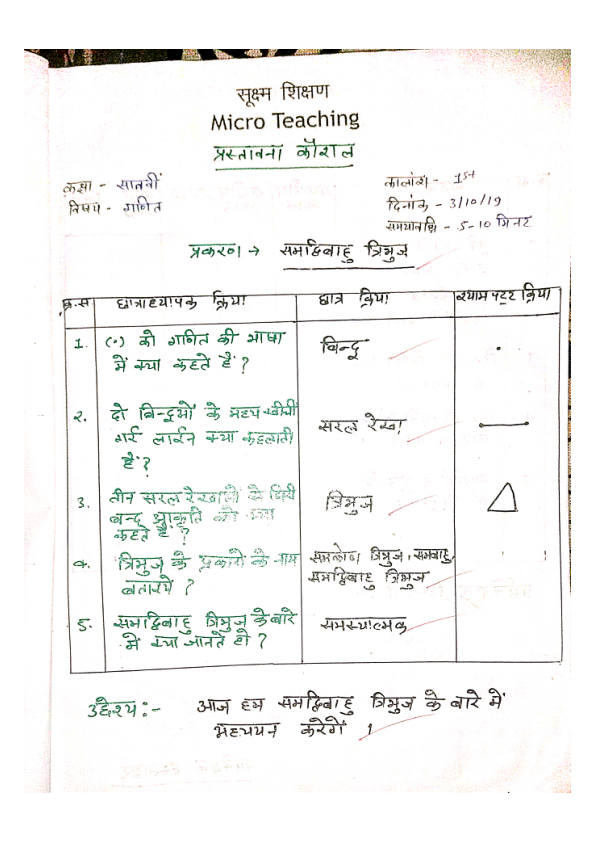 सूक्ष्म शिक्षण
Micro Teaching
प्रस्तावना कौशल
कक्षा - सातवीं
कालांश - 1st
विषय - गणित
दिनांक - 3/10/19
समयावधि - 5-10 मिनट
प्रकरण → समद्विबाहु त्रिभुज
क्र.स छात्राध्यापक क्रिया छात्र क्रिया श्यामपट्ट क्रिया
1. (•) को गणित की भाषा बिन्दू
में क्या कहते हैं ?
2. दो बिन्दूओं के मध्य खींची सरल रेखा
गई लाईन क्या कहलाती
हैं ?
3. तीन सरल रेखाओं से घिरी त्रिभुज
बन्द आकृति को क्या
कहते हैं ?
4. त्रिभुज के प्रकारों के नाम समकोण त्रिभुज, समबाहु,
बताइये ? समद्विबाहु त्रिभुज
5. समद्विबाहु त्रिभुज के बारे समस्यात्मक
में क्या जानते हो ?
उद्देश्य :- आज हम समद्विबाहु त्रिभुज के बारे में
अध्ययन करेगें ।